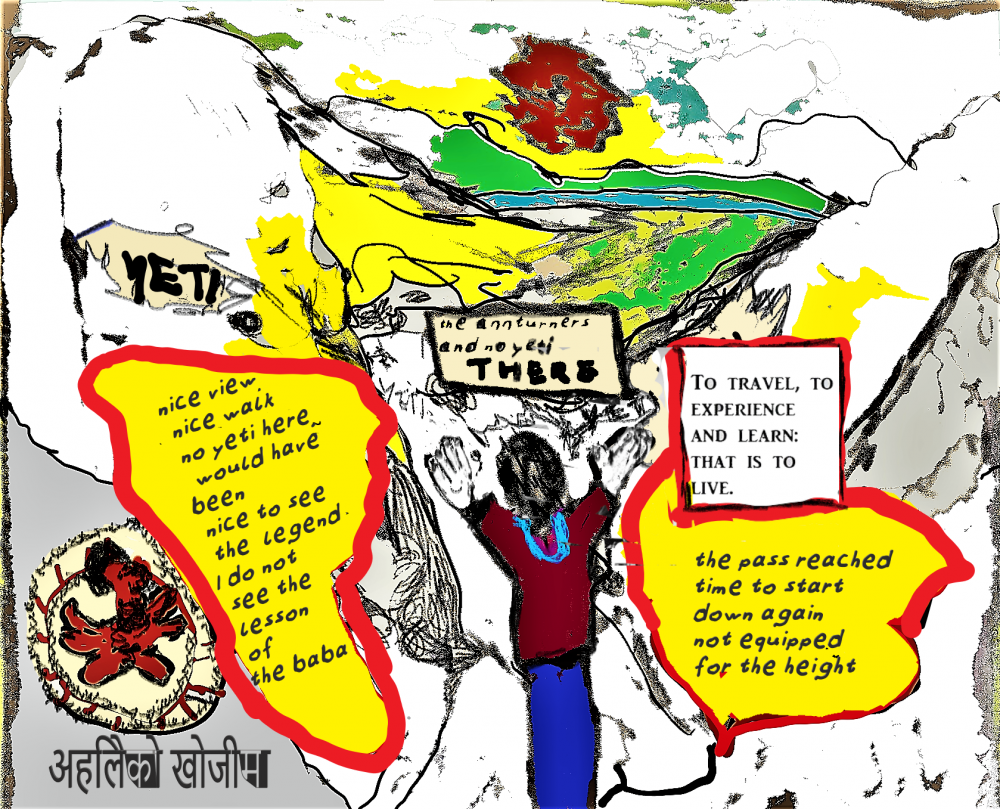 YETI
the annturners
and no yeti
THERE
nice view
nice walk
no yeti here
would have
been
nice to see
the legend.
I do not
see the
lesson
of
the baba
TO TRAVEL, TO
EXPERIENCE
AND LEARN:
THAT IS TO
LIVE.
the pass reached
time to start
down again
not equipped
for the height
अहिलेको खोजीमा